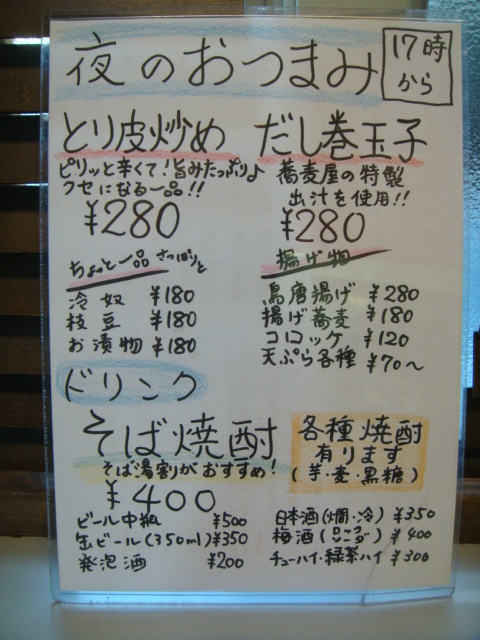 夜のおつまみ
17時
から
とり皮炒め
ピリッと辛くて！旨みたっぷり♪
クセになる一品！！
¥280
だし巻玉子
蕎麦屋の特製
出汁を使用！！
¥280
ちょっと一品 さっぱりと
冷奴 ¥180
枝豆 ¥180
お漬物 ¥180
揚げ物
鳥唐揚げ ¥280
揚げ蕎麦 ¥180
コロッケ ¥120
天ぷら各種 ¥70～
ドリンク
そば焼酎
そば湯割がおすすめ！
¥400
各種焼酎
有ります
(芋・麦・黒糖)
ビール中瓶 ¥500
缶ビール(350ml) ¥350
発泡酒 ¥200
日本酒(燗・冷) ¥350
梅酒(ロック・ソーダ) ¥400
チューハイ・緑茶ハイ ¥300